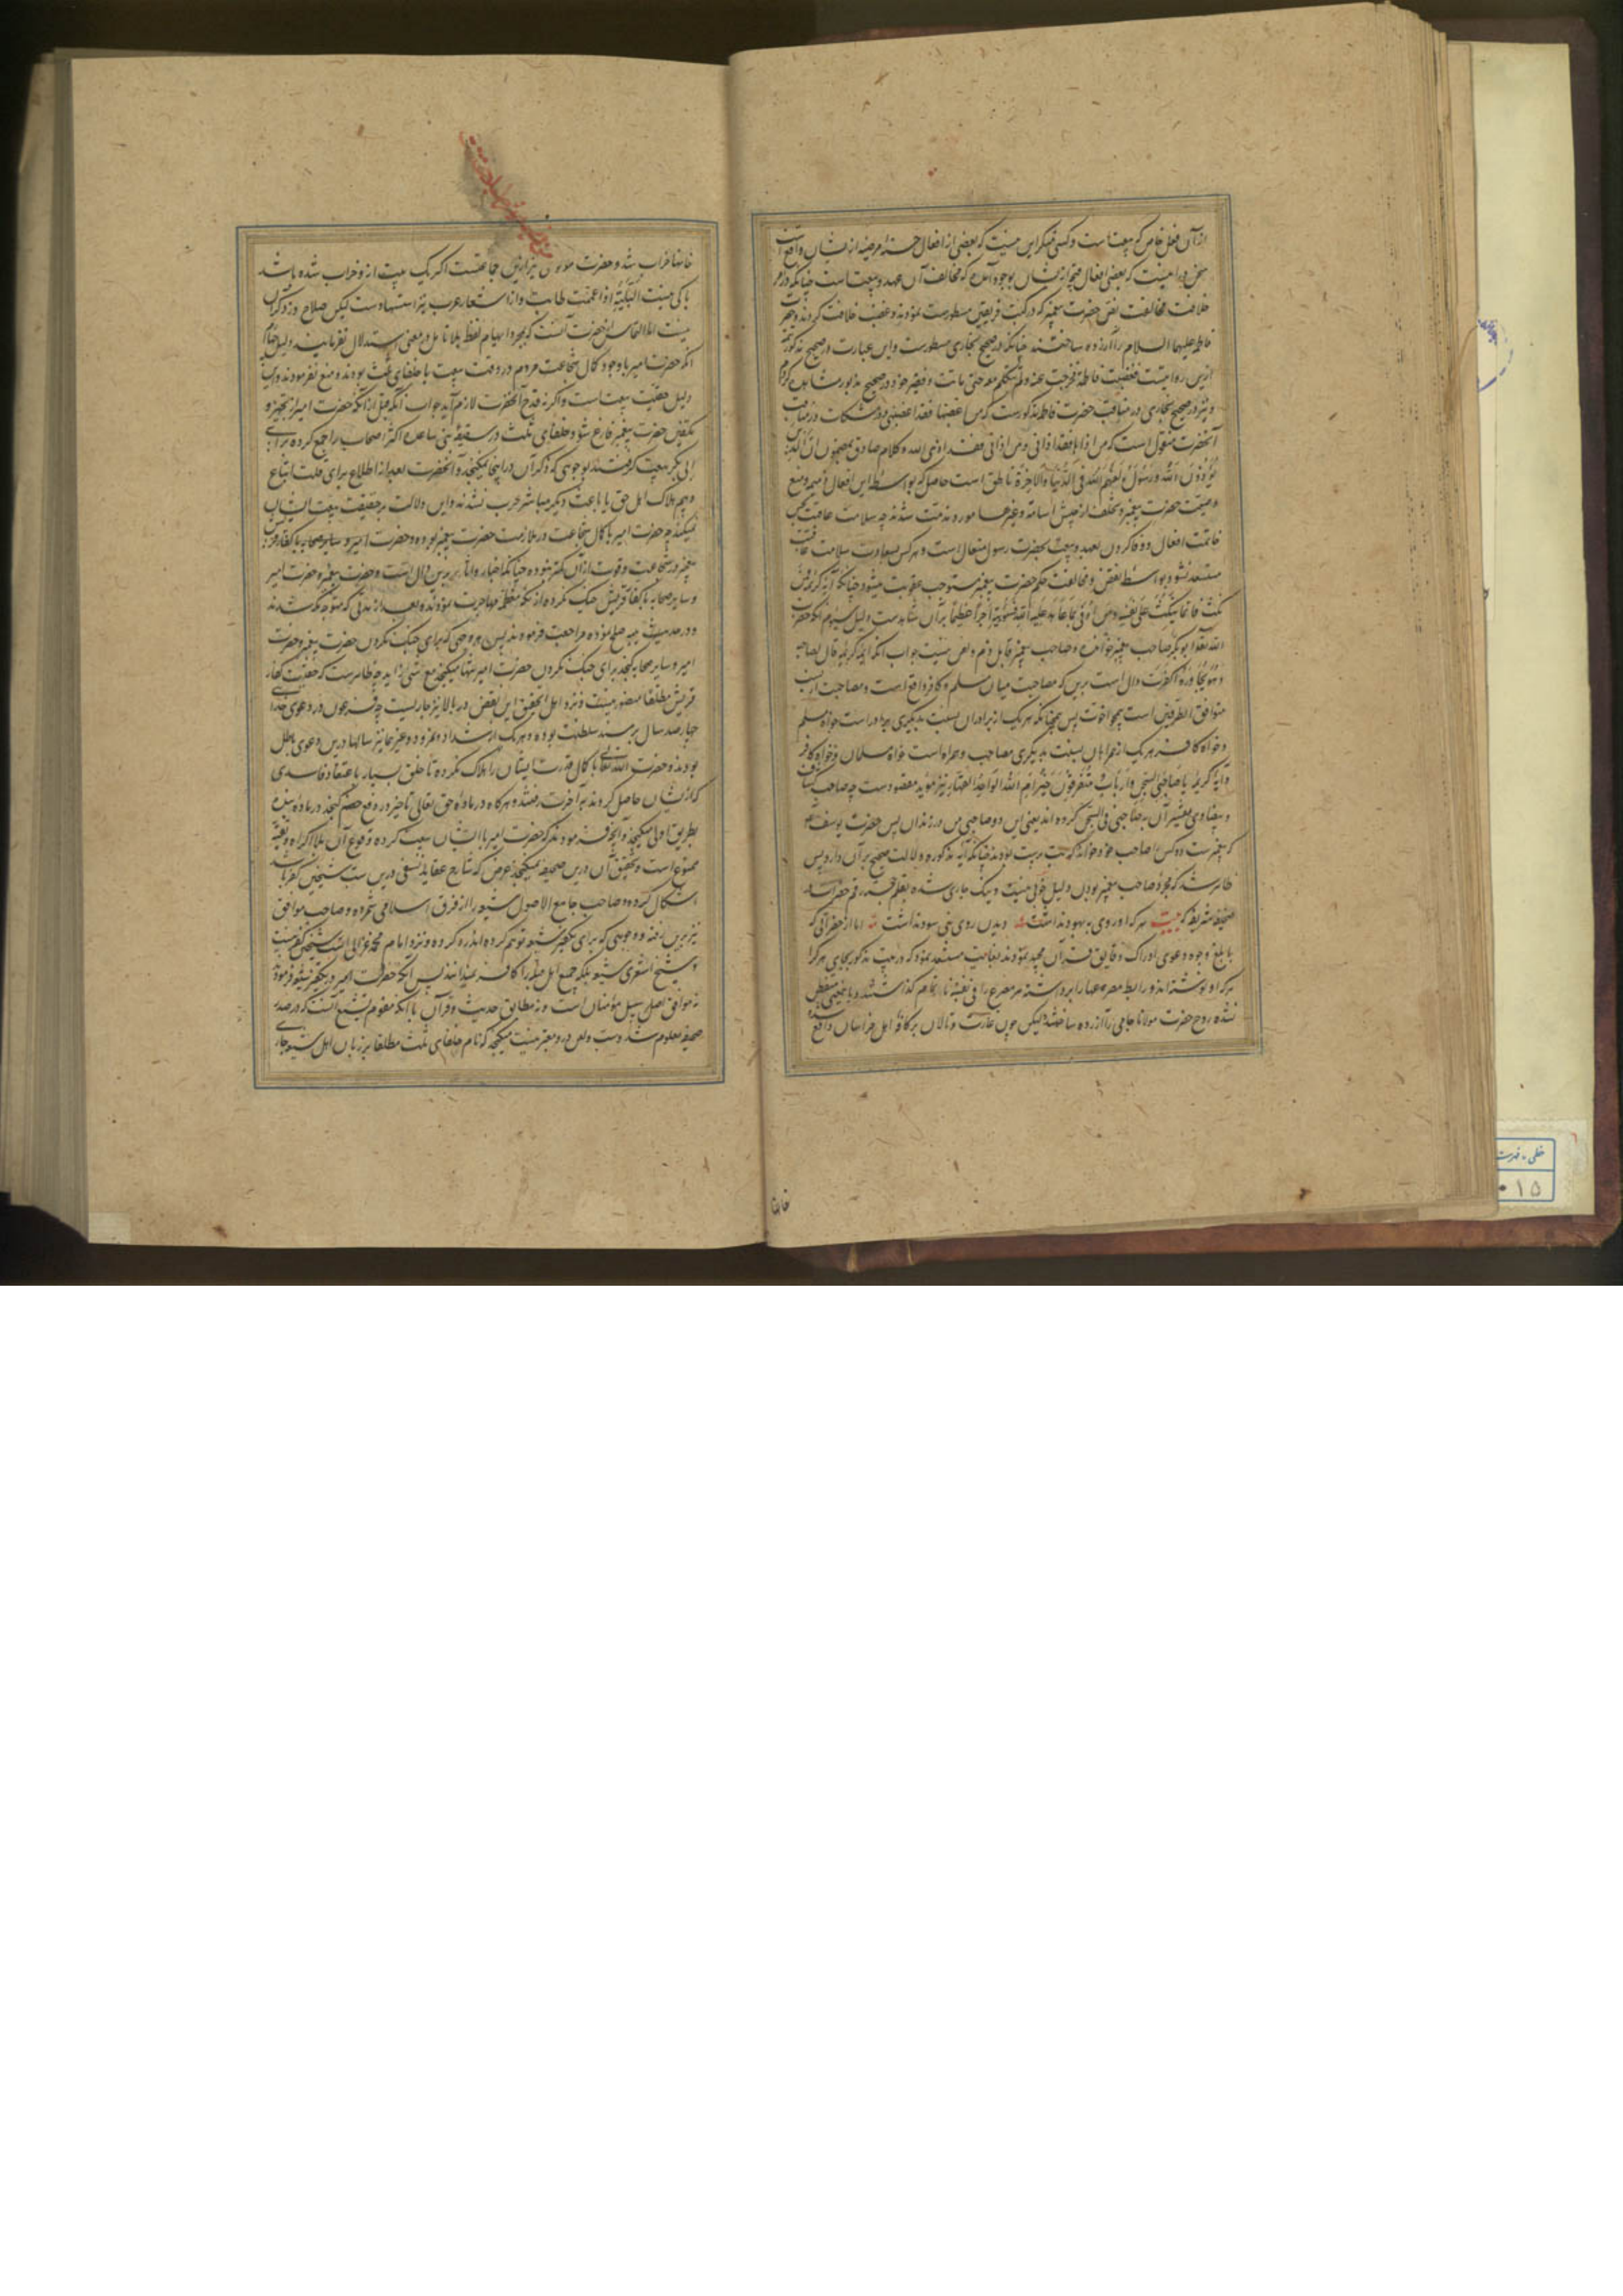 ازان فعل خاص که بیعت است و کسی منکر این نیست که بعضی از افعال حسنه مرضیه از ایشان واقع است
سخن درین است که بعضی افعال قبیحه از ایشان بوجود آمده که مخالف آن عهد و بیعت است چنانکه در امر
خلافت مخالفت نص حضرت پیغمبر که در کتب فریقین مسطورست نمودند و غصب خلافت کردند و حضرت
فاطمه علیها السلام را آزرده ساختند چنانکه در صحیح بخاری مسطورست و این عبارت در صحیح مذکور
ازین روایتست فغضبت فاطمة فخرجت عنه ولم تتکلم معه حتی ماتت و فقیر خود در صحیح مذکور مشاهده کردم
و نیز در صحیح بخاری در مناقب حضرت فاطمه مذکورست که من اغضبها فقد اغضبنی و در مشکات در مناقب
آنحضرت منقول است که من اذاها فقد اذانی و من اذانی فقد اذی الله و کلام صادق بمضمون ان الذین
یؤذون الله و رسوله لعنهم الله فی الدنیا والاخرة ناطق است حاصل که بواسطه این افعال ذمیمه و منع
وصیت حضرت پیغمبر و تخلف از جیش اسامه و غیرها مورد مذمت شدند چه سلامت عاقبت بحسن
خاتمت افعال و وفا کردن بعهد و بیعت بحضرت رسول متعال است و هر کس بسعادت سلامت عاقبت
مستعد نشود بواسطه نقض و مخالفت حکم حضرت پیغمبر مستوجب عقوبت میشود چنانکه آیه کریمه فمن
نکث فانما ینکث علی نفسه ومن اوفی بما عاهد علیه الله فسیؤتیه اجرا عظیما برآن شاهدست دلیل سیوم آنکه حضرت
الله تعالی ابوبکر صاحب پیغمبر خوانده و صاحب پیغمبر قابل ذم و لعن نیست جواب آنکه آیه کریمه قال لصاحبه
وهو یحاوره اکفرت دال است برین که مصاحبت میان مسلم و کافر واقع است و مصاحبت از نسب
متوافق الطرفین است همچو اخوت پس همچنانکه هر یک از برادران بنسبت بدیگری برادر است خواه مسلم
و خواه کافر هر یک از همراهان بنسبت بدیگری مصاحب و همراه است خواه مسلمان و خواه کافر
و آیه کریمه یا صاحبی السجن اارباب متفرقون خیر ام الله الواحد القهار نیز مؤید مقصودست چه صاحب کشاف
و بیضاوی تفسیر آن بصاحبی فی السجن کرده اند یعنی ای دو صاحب من در زندان پس حضرت یوسف
که پیغمبرست دو کس را صاحب خود خواند که بت پرست بودند چنانکه آیه مذکوره دلالت صحیح برآن دارد پس
ظاهر شد که مجرد صاحب پیغمبر بودن دلیل خوبی نیست و نیک جاری شده بقلم خجسته رقم حضرات
صحیفه شریفه که بیت هر که را روی به بهبود نداشت دیدن روی نبی سود نداشت اما از حضراتی که
بابلغ وجوه دعوی ادراک دقایق قرآن مجید نمودند بغایت مستبعد نمود که در بیت مذکور بجای هر کرا
هر که او نوشته اند و رابطه مصرعها را برداشته هر مصرع را فی نفسه ناتمام گذاشتند و باین معنی متفطن
نشده روح حضرت مولانا جامی را آزرده ساختند لیکن چون غارت و تالان بر کافه اهل خراسان واقع شده
خانها
خانها خراب شد و حضرت مولوی نیز ازین جماعتست اگر یک بیت از و خراب شده باشد
باکی نیست البلیة اذا عمت طابت و از اشعار عرب نیز استشهادست لیکن صلاح در ذکر آن
نیست اما التماس از حضرت آنست که بمجرد ایهام لفظ بلا تامل در معنی استدلال نفرمایند دلیل چهارم
آنکه حضرت امیر با وجود کمال شجاعت مردم در وقت بیعت با خلفای ثلث بودند و منع نفرمودند و این
دلیل حقیت بیعت است و اگر نه قدح آنحضرت لازم آید جواب آنکه قبل از آنکه حضرت امیر از تجهیز و
تکفین حضرت پیغمبر فارغ شود خلفای ثلث در سقیفه بنی ساعده اکثر اصحاب را جمع کرده برای
ابی بکر بیعت گرفتند بوجوهی که ذکر آن درینجا نمیگنجد و آنحضرت بعد از اطلاع برای قلت اتباع
و بیم هلاک اهل حق یا باعث دیگر مباشر حرب نشدند و این دلالت بر حقیقت بیعت ایشان
نمیکند چه حضرت امیر با کمال شجاعت در ملازمت حضرت پیغمبر بوده و حضرت امیر و سایر صحابه با کفار قریش
پیغمبر در شجاعت و قوت ازان کمتر نبوده چنانکه اخبار و آثار برین دال است و حضرت پیغمبر و حضرت امیر
و سایر صحابه با کفار قریش جنگ نکرده از مکه معظمه مهاجرت نمودند و بعد از مدتی که متوجه مکه شدند
و در حدیبیه صلح نموده مراجعت فرمودند پس هر وجهی که برای جنگ نکردن حضرت پیغمبر و حضرت
امیر و سایر صحابه گنجد برای جنگ نکردن حضرت امیر تنها میگنجد مع شئ زاید چه ظاهرست که حقیت کفار
قریش مطلقا متصور نیست و نزد اهل تحقیق این نقض در بالا نیز جاریست چه فرعون در دعوی خدایی
چهارصد سال بر مسند سلطنت بوده و هر یک از شداد و نمرود و غیرهما نیز سالها درین دعوی باطل
بودند و حضرت الله تعالی با کمال قدرت ایشان را هلاک نکرده تا خلق بسیار باعتقاد فاسدی
که از ایشان حاصل کردند به آخرت رفتند و هر گاه در ماده حق تعالی تاخیر در دفع خصم گنجد در ماده بنده
بطریق اولی میگنجد و آنچه فرمودند که حضرت امیر با ایشان بیعت کرده وقوع آن بلا اکراه و تقیه
ممنوع است و تحقیق آن درین صحیفه نمیگنجد غرض که شارح عقاید نسفی درین که سب شیخین کفر باشد
اشکال کرده و صاحب جامع الاصول شیعه را از فرق اسلامی شمرده و صاحب مواقف
نیز برین رفته و وجوهی که برای تکفیر شیعه توهم کرده اند رد کرده و نزد امام محمد غزالی سب شیخین کفر نیست
و شیخ اشعری شیعه بلکه جمیع اهل قبله را کافر نمیدانند پس آنچه حضرت امیر در تکفیر شیعه فرمودند
نه موافق اصل سبیل مؤمنان است و نه مطابق حدیث و قرآن با آنکه مفهوم تشیع آنست که در صدر
صحیفه معلوم شد و سب و لعن درو معتبر نیست میگنجد که نام خلفای ثلث مطلقا بر زبان اهل شیعه جاری
خطی - فهرست
۰۱۵